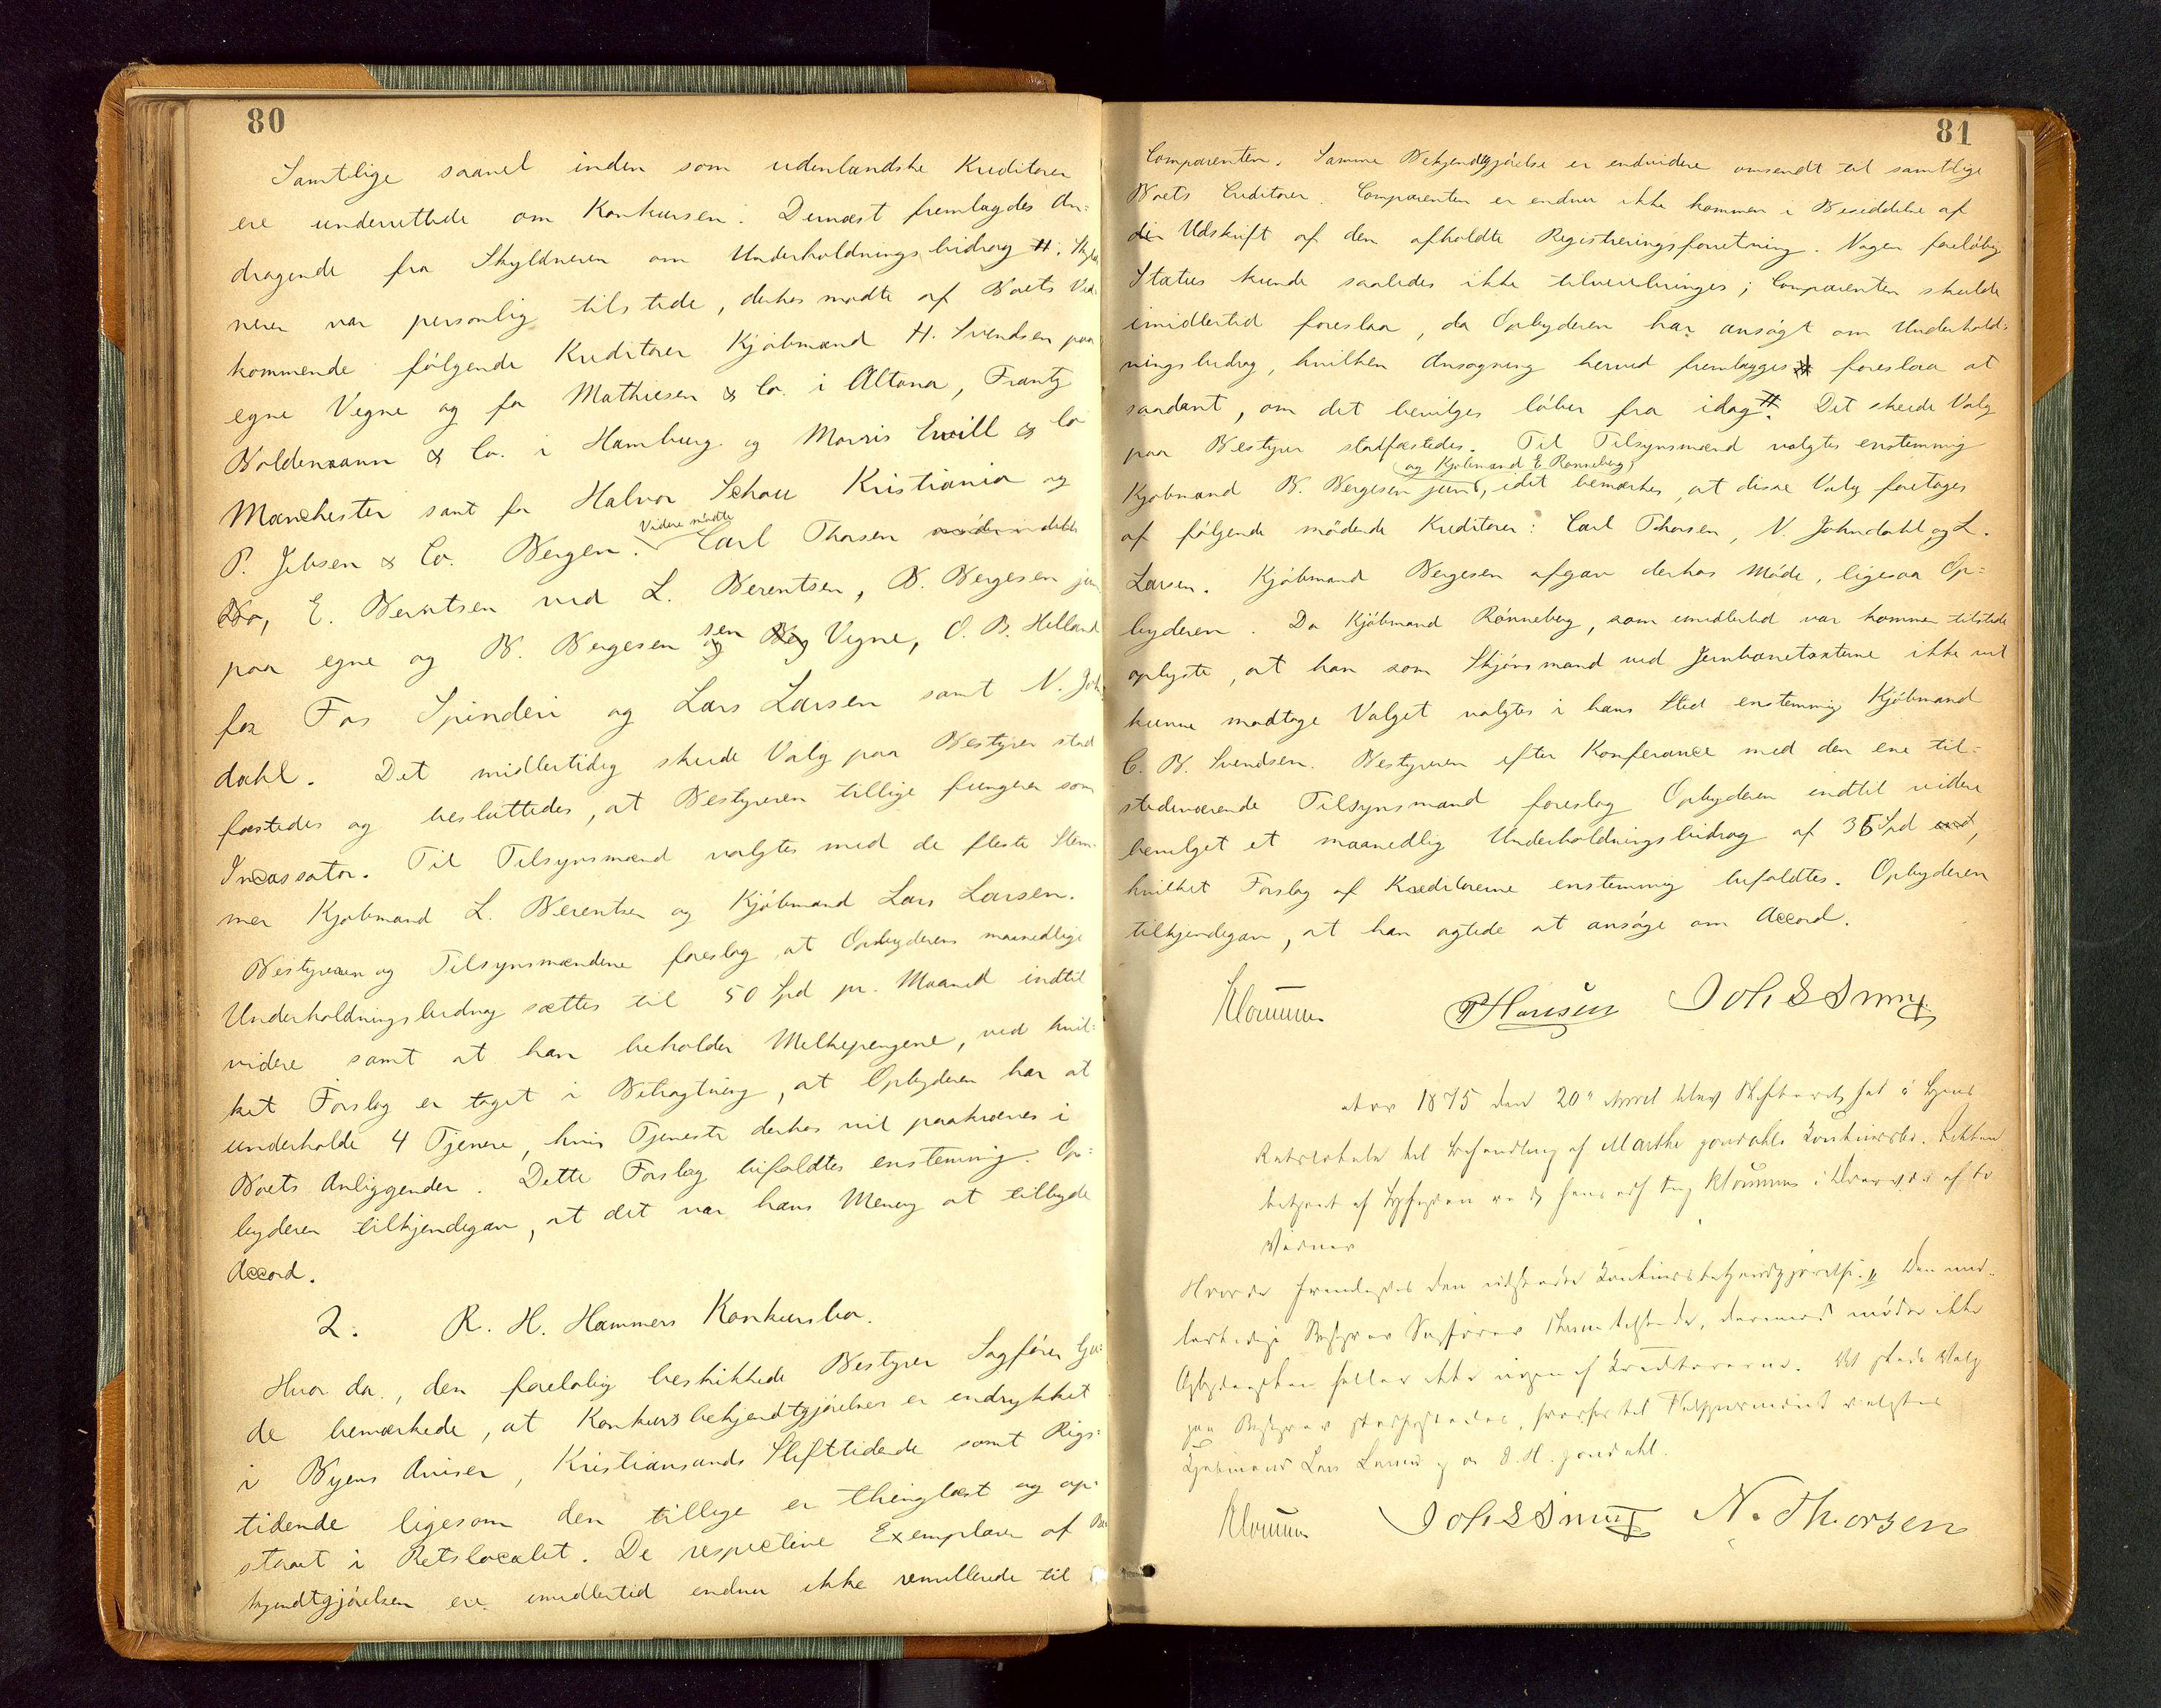 80
Samtlige saavel inden som udenlandske Kreditorer
ere underrettede om Konkursen. Dernæst fremlagdes An=
dragende fra Skyldneren om Underholdningsbidrag #. Skyld
neren var personlig tilstede, derhos mødte af Boets Ved
kommende følgende Kreditorer Kjøbmand H. Svendsen paa
egne Vegne og for Mathiesen & Co. i Altona, Frantz
Boldemann & Co. i Hamburg og Morris Ewill & Co
Manchester samt for Halvor Schou Kristiania og
P. Jebsen & Co. Bergen. Videre mødte Carl Thorsen
E. Berntsen ved L. Berentsen, B. Bergesen jun
paa egne og B. Bergesen sen Vegne, O. B. Helland
for Fos Spinderi og Lars Larsen samt N. Joh
dahl. Det midlertidig skeede Valg paa Bestyrer stad
fæstedes og besluttedes, at Bestyreren tillige fungerer som
Incassator. Til Tilsynsmænd valgtes med de fleste Stem=
mer Kjøbmand L. Berentsen og Kjøbmand Lars Larsen.
Bestyreren og Tilsynsmændene foreslog at Opbyderens maanedlige
Underholdningsbidrag sættes til 50 Spd pr. Maaned indtil
videre samt at han beholder Melkepengene, ved hvil=
ket Forslag er taget i Betragtning, at Opbyderen har at
underholde 4 Tjenere, hvis Tjeneste derhos vil paakræves i
Boets Anliggender. Dette Forslag bifaldtes enstemmig. Op=
byderen tilkjendegav, at det var hans Mening at tilbyde
Accord.
2. R. H. Hammers Konkursbo.
Hvor da, den foreløbig beskikkede Bestyrer Sagfører
de bemærkede, at Konkursbekjendtgjørelsen er indrykket
i Byens Aviser, Kristiansands Stiftstidende samt Rigs=
tidende ligesom den tillige er thinglæst og op=
slaaet i Retslocalet. De respective Exemplarer af Be
kjendtgjørelsen ere imidlertid endnu ikke remitterede til
81
Comparenten. Samme Bekjendtgjørelse er endvidere omsendt til samtlige
Boets Creditorer. Comparenten er endnu ikke kommen i Besiddelse af
Udskrift af den afholdte Registreringsforretning. Nogen foreløbig
Status kunde saaledes ikke tilveiebringes; Comparenten skulde
imidlertid foreslaa, da Opbyderen har ansøgt om Underhold=
ningsbidrag, hvilken Ansøgning herved fremlægges # foreslaa at
saadant, om det bevilges løber fra idag #. Det skeede Valg
paa Bestyrer stadfæstedes. Til Tilsynsmænd valgtes enstemmig
Kjøbmand B. Bergesen jun og Kjøbmand E Rønneberg, idet bemærkes, at disse Valg foretages
af følgende mødende Kreditorer: Carl Thorsen, N. Johndahl og L.
Larsen. Kjøbmand Bergesen afgav derhos Møde, ligesaa Op=
byderen. Da Kjøbmand Rønneberg, som imidlertid var kommen tilstede
oplyste, at han som Skjønsmand ved Jernbanetaxterne ikke vil
kunne modtage Valget valgtes i hans Sted enstemmig Kjøbmand
C. B. Svendsen. Bestyreren efter Konferance med den ene til=
stedeværende Tilsynsmand foreslog Opbyderen indtil videre
bevilget et maanedlig Underholdningsbidrag af 35 Spd
hvilket Forslag af Kreditorerne enstemmig bifaldtes. Opbyderen
tilkjendegav, at han agtede at ansøge om Accord.
PHansen
1875 den 20de April blev Skifteret sat i Byens
Retslokale til Behandling af Marthe Jondahls Konkursbo. Retten
betjent af Byfogden ved hans i Overvær af to
Vidner
Hvorda fremlagdes den udstedte Konkursbekjendtgjørelse. Den mid=
lertidige Bestyrer Sagfører tilstede, derimod møder ikke
Opbydersken heller ikke nogen af Kreditorerne. Det skede Valg
paa Bestyrer stadfæstedes, hvorhos til Tilsynsmænd valgtes
Kjøbmænd Lars Larsen og O. H. Jondahl.
N. Thorsen